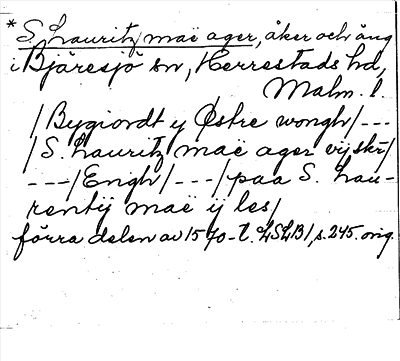 * S. Lauritz maë ager, åker och äng
i Bjäresjö sn, Herrestads hd,
Malm. l.
/Bygiordt y Østre wongh/---
/S. Lauritz maë ager vij skr/
---/Engh/---/paa S. Lau-
rentij maë ij les/
förra delen av 1570-t. LSLB1, s. 245. orig.